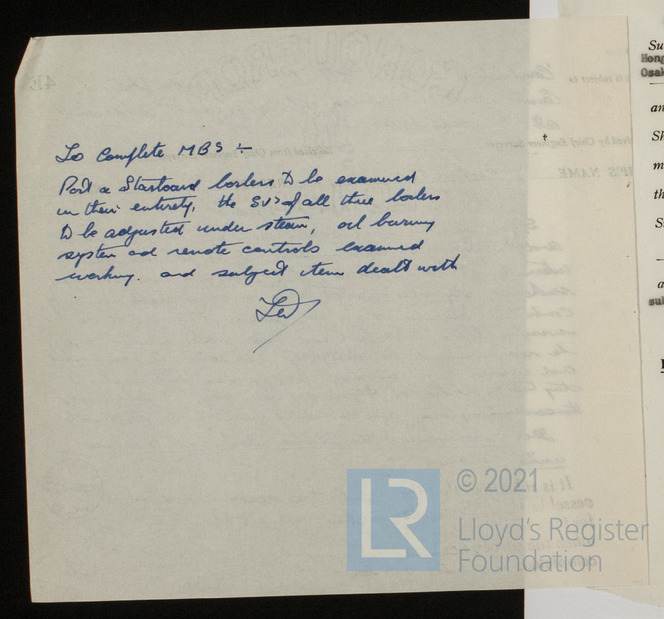 To Complete MBS :-
Port & Starboard boilers to be examined
in their entirety, the SVs of all three boilers
to be adjusted under steam, oil burning
system and remote controls examined
working. and subject item dealt with
© 2021
LR
Lloyd's Register
Foundation
Su
Hong
Osak
an
Sh
m
th
S
a
sul